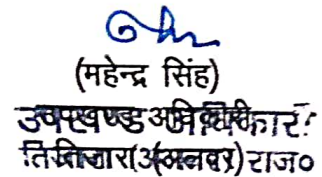 (महेन्द्र सिंह)
उपखण्ड अधिकारी
तिजारा(अलवर)राज०